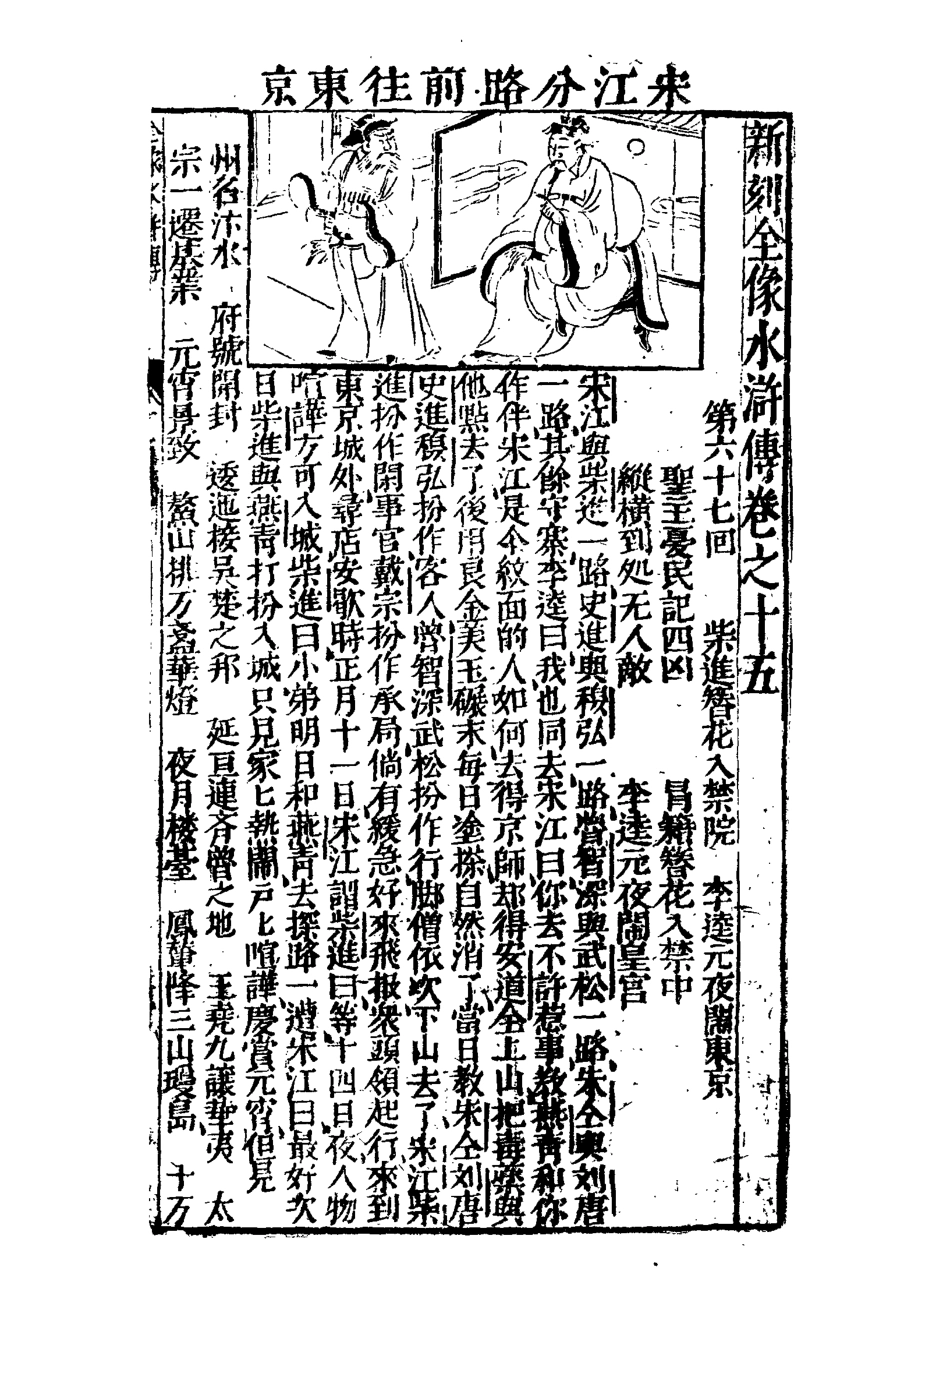 宋江分路前往東京
新刻全像水滸傳卷之十五
第六十七回 柴進簪花入禁院 李逵元夜鬧東京
聖主憂民記四凶 冐籍簪花入禁中
縱橫到処无人敵 李逵元夜鬧皇宮
宋江與柴進一路史進與穆弘一路魯智深與武松一路朱仝與刘唐
一路其餘守寨李逵曰我也同去宋江曰你去不許惹事教燕青和你
作伴宋江是个紋面的人如何去得京師却得安道全上山把毒藥與
他點去了後用良金美玉碾末每日塗搽自然消了當日教朱仝刘唐
史進穆弘扮作客人魯智深武松扮作行脚僧依次下山去了宋江柴
進扮作閑事官戴宗扮作承局倘有緩急好來飛报衆頭領起行來到
東京城外尋店安歇時正月十一日宋江謂柴進曰等十四日夜人物
喧譁方可入城柴進曰小弟明日和燕青去探路一遭宋江曰最好次
日柴進與燕青打扮入城只見家匕熱鬧戸匕喧譁慶賞元宵但見
州名汴水 府號開封 逶迤接吳楚之邦 延亘連齐魯之地 王堯九讓華夷 太
宗一遷基業 元宵景致 鰲山排万盞華燈 夜月楼臺 鳳輦降三山瓊島 十万